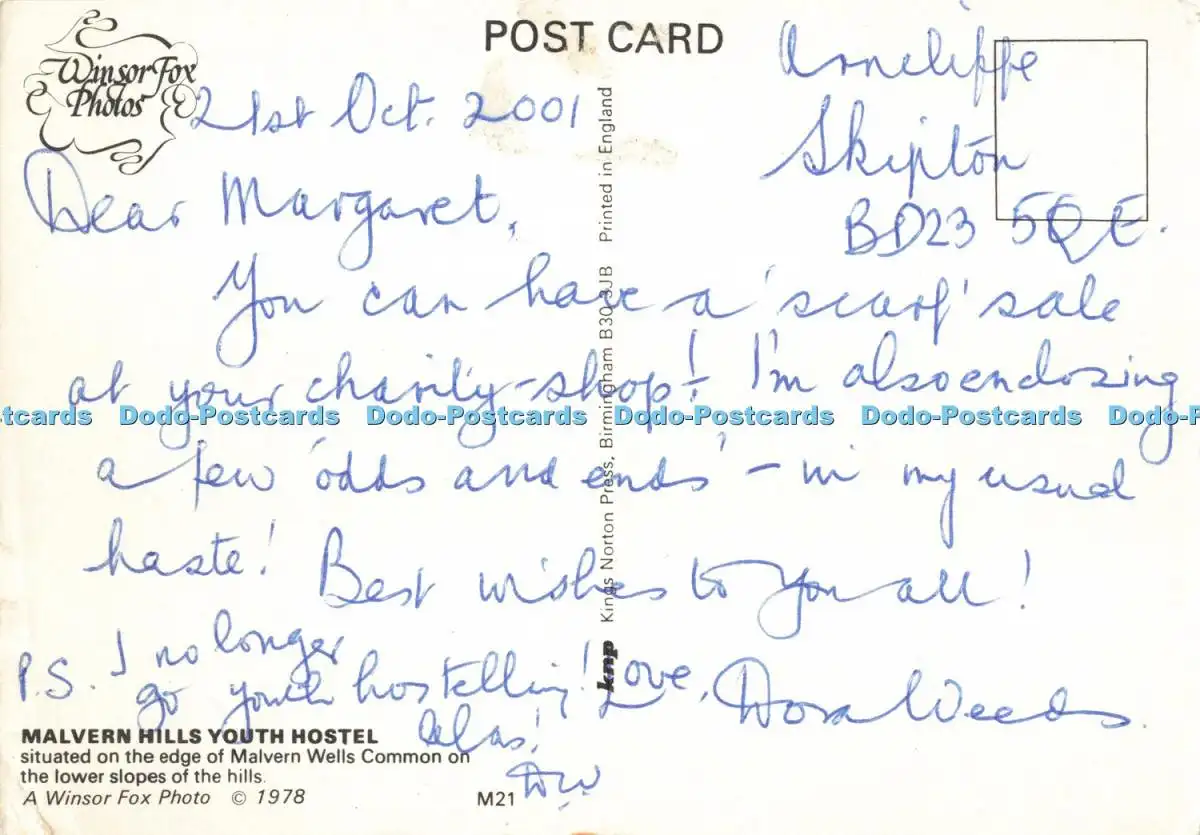 POST CARD
Winsor Fox
Photos
Arncliffe
Skipton
BD23 5QE.
21st Oct. 2001
Dear Margaret,
You can have a 'scarf' sale
at your charity-shop! I'm also enclosing
a few 'odds and ends' - in my usual
haste! Best wishes to you all!
Love, Dora Weeds.
P.S. I no longer
go youth hostelling!
Alas!
DW
MALVERN HILLS YOUTH HOSTEL
situated on the edge of Malvern Wells Common on
the lower slopes of the hills.
A Winsor Fox Photo © 1978
M21
knp Kings Norton Press, Birmingham B30 3JB Printed in England
Dodo-Postcards Dodo-Postcards Dodo-Postcards Dodo-Postcards Dodo-Postcards